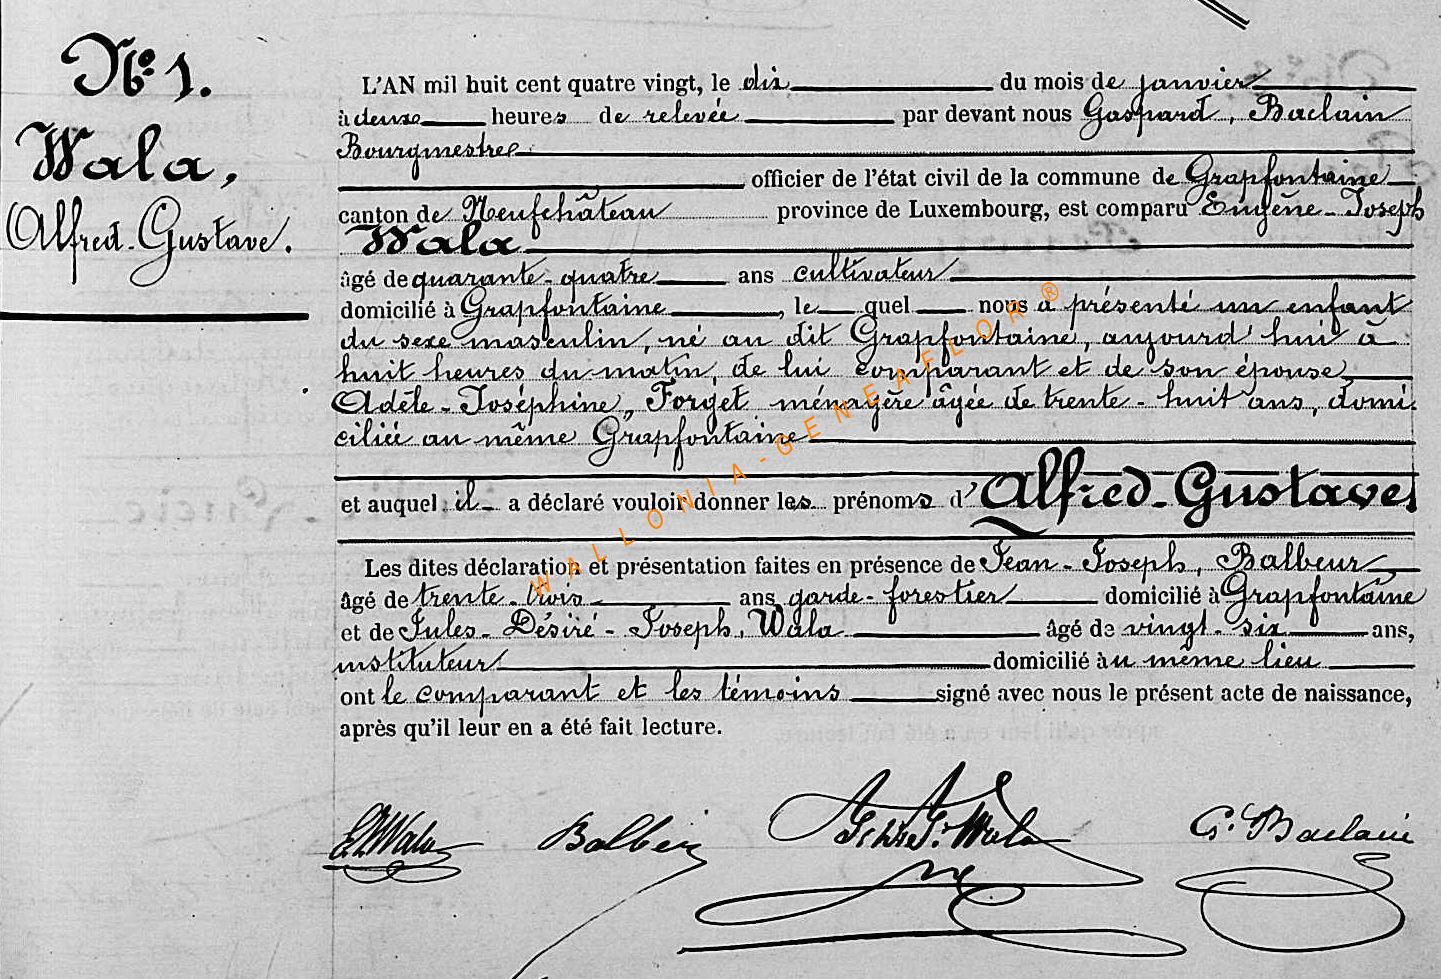 N° 1.
Wala,
Alfred-Gustave.
L'AN mil huit cent quatre vingt, le dix du mois de janvier
à deux heures de relevée par devant nous Gaspard, Baclain
Bourgmestre
officier de l'état civil de la commune de Grapfontaine
canton de Neufchâteau province de Luxembourg, est comparu Eugène-Joseph
Wala
âgé de quarante-quatre ans cultivateur
domicilié à Grapfontaine, le quel nous a présenté un enfant
du sexe masculin, né au dit Grapfontaine, aujourd'hui à
huit heures du matin, de lui comparant et de son épouse
Adèle-Joséphine, Forget ménagère âgée de trente-huit ans, domi
ciliée au même Grapfontaine
et auquel il a déclaré vouloir donner les prénoms d'Alfred-Gustave.
Les dites déclaration et présentation faites en présence de Jean-Joseph, Balbeur
âgé de trente-trois ans garde-forestier domicilié à Grapfontaine
et de Jules-Désiré-Joseph, Wala âgé de vingt-six ans,
instituteur domicilié au même lieu
ont le comparant et les témoins signé avec nous le présent acte de naissance,
après qu'il leur en a été fait lecture.
Wala Balbeur Wala G. Baclain
WALLONIA-GENEAFLOR®